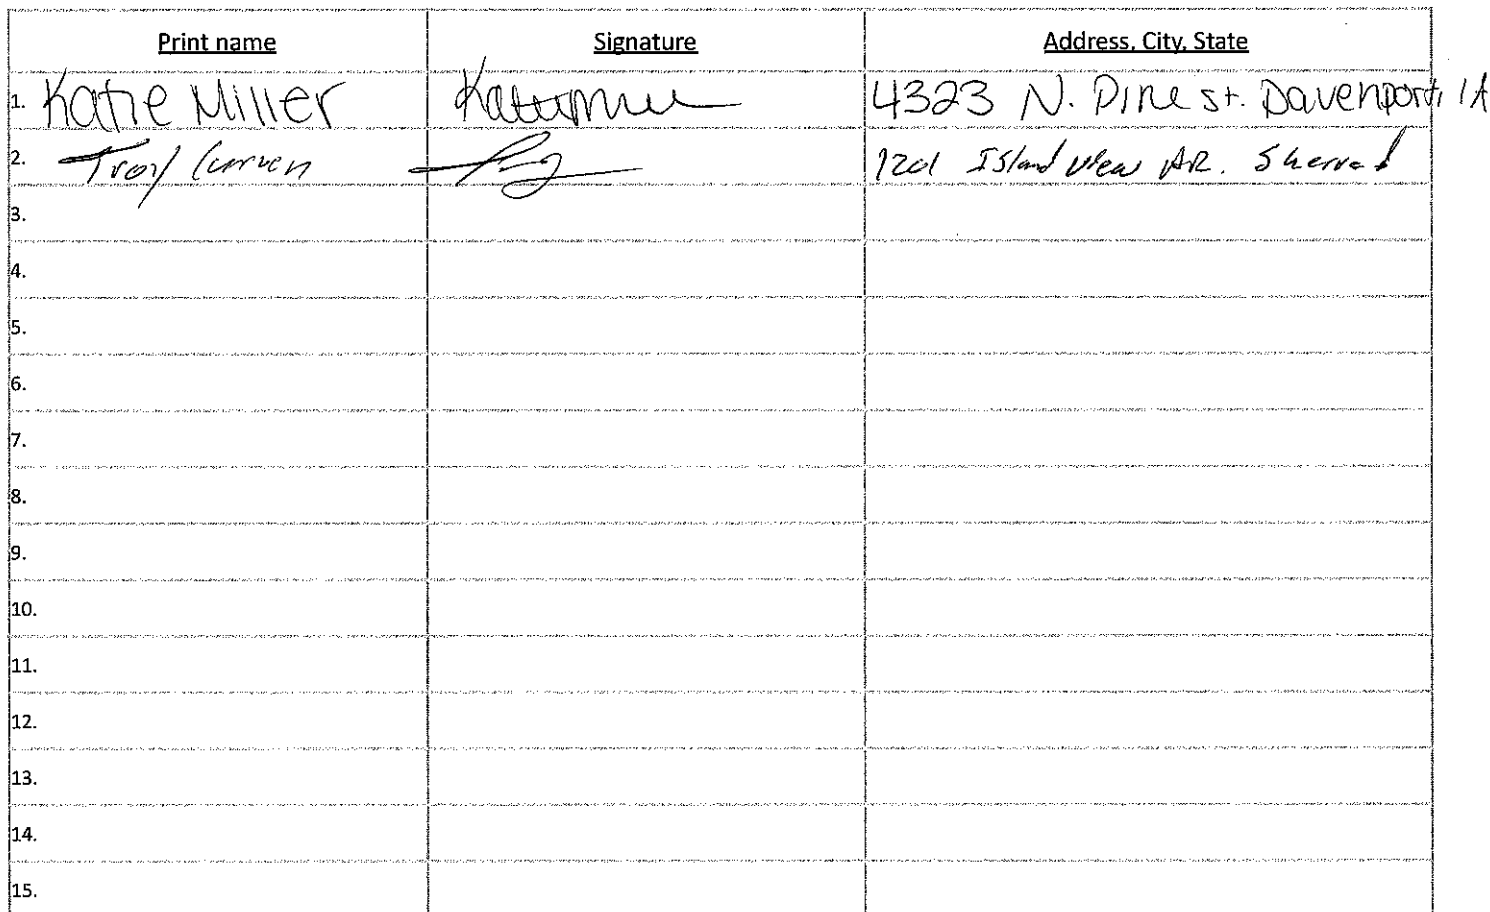 Print name Signature Address, City, State
1. Katie Miller Katie Mille 4323 N. Pine St. Davenport, IA
2. Troy 1201 Island View DR. Sherrard
3.
4.
5.
6.
7.
8.
9.
10.
11.
12.
13.
14.
15.